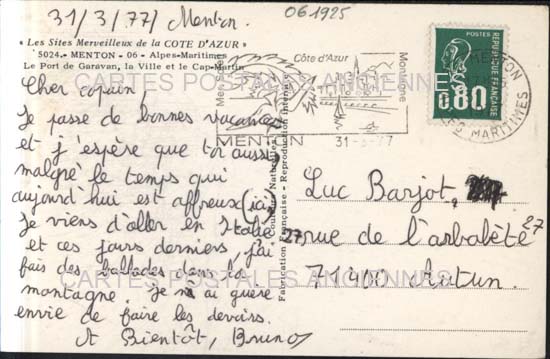 31/3/77 / Menton.
061925
« Les Sites Merveilleux de la COTE D'AZUR »
5024. - MENTON - 06 - Alpes-Maritimes
Le Port de Garavan, la Ville et le Cap Martin
Cher copain,
Je passe de bonnes vacances
et j'espère que toi aussi
malgré le temps qui
aujourd'hui est affreux (ici)
Je viens d'aller en Italie
et ces jours derniers j'ai
fais des ballades dans la
montagne. Je n'ai guère
envie de faire les devoirs.
A Bientôt, Bruno
« Couleurs Naturelles »
Fabrication Française - Reproduction interdite
Côte d'Azur
Montagne
MENTON
31-3-77
POSTES
0.80
REPUBLIQUE FRANÇAISE
MENTON
ALPES MARITIMES
Luc Barjot,
27 rue de l'arbalète 27
71400 Autun.
CARTES POSTALES ANCIENNES
CARTES POSTALES ANCIENNES